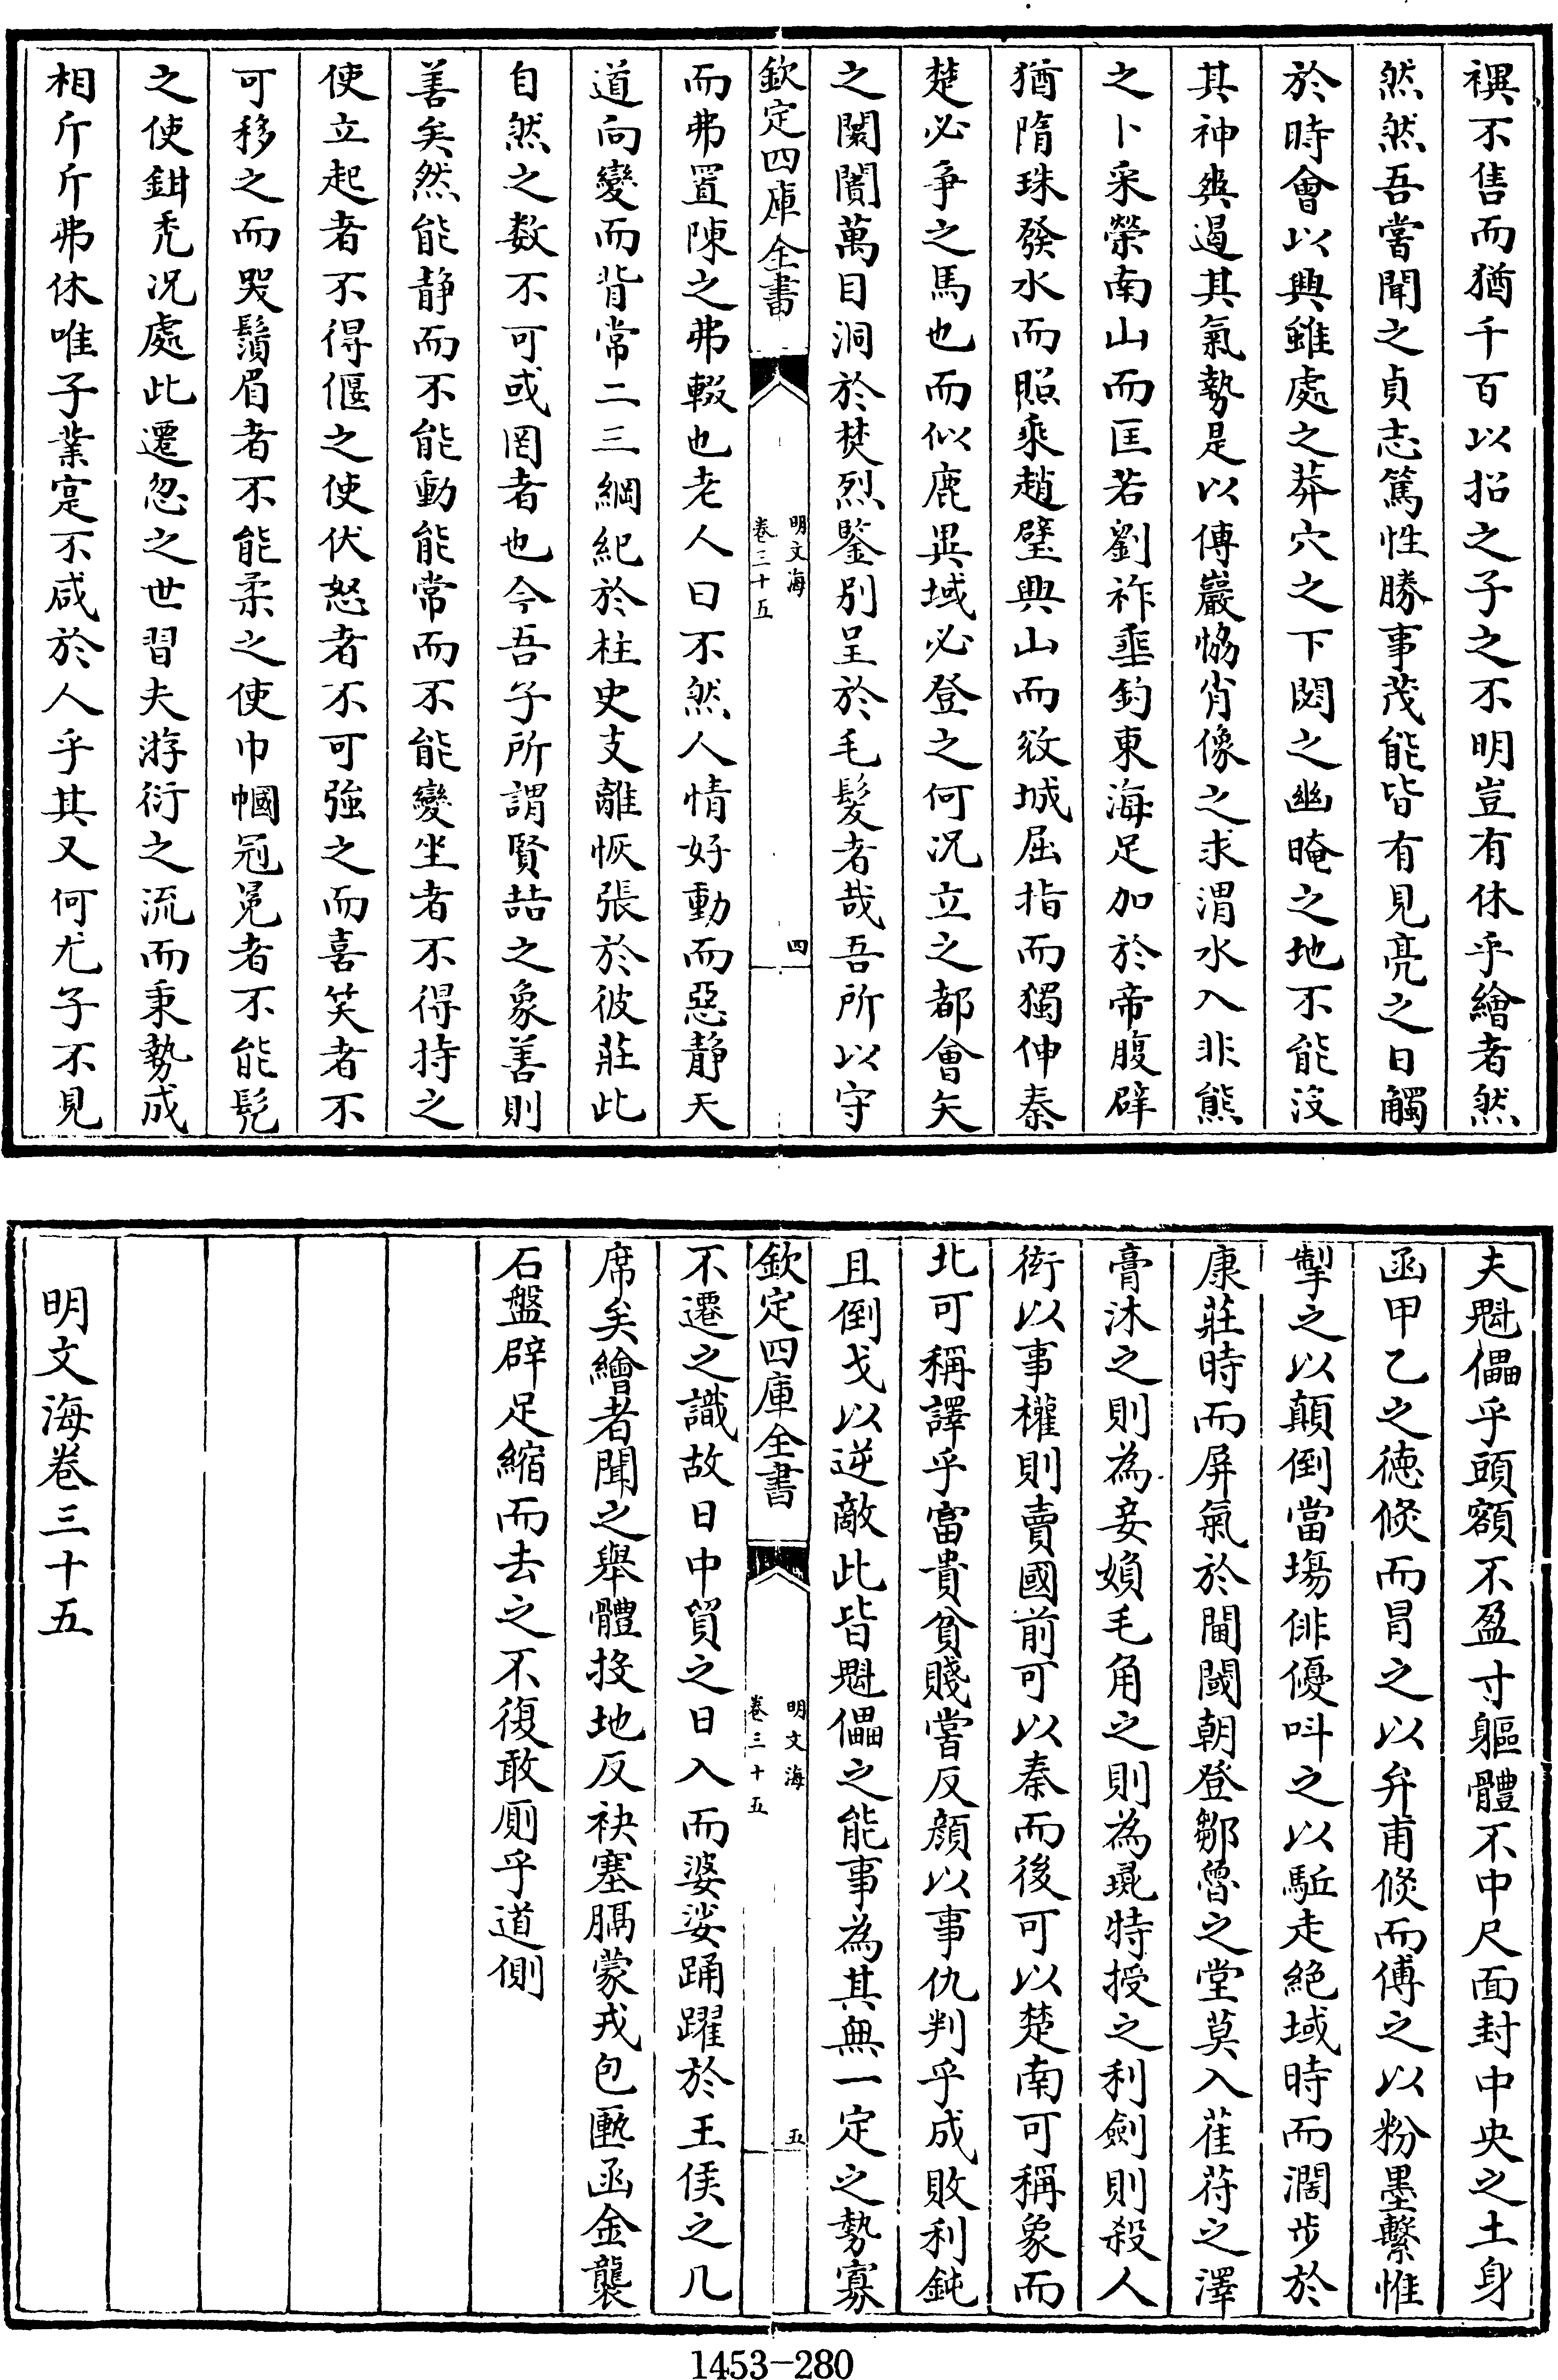 襈不售而猶千百以招之子之不明豈有休乎繪者然
然然吾嘗聞之貞志篤性勝事茂能皆有見亮之日觸
於時會以興雖處之莽穴之下閟之幽晻之地不能沒
其神爽遏其氣勢是以傅巖恊肖像之求渭水入非熊
之卜采榮南山而匡若劉祚垂釣東海足加於帝腹辟
猶隋珠發水而照乘趙璧興山而紋城屈指而獨伸秦
楚必爭之馬也而似鹿異域必登之何况立之都會矢
之闤闠萬目洞於焚烈鑒别呈於毛髮者哉吾所以守
欽定四庫全書
明文海
卷三十五
四
而弗置陳之弗輟也老人曰不然人情好動而惡静天
道向變而背常二三綱紀於柱史支離恢張於彼莊此
自然之数不可或罔者也今吾子所謂賢喆之象善則
善矣然能静而不能動能常而不能變坐者不得持之
使立起者不得偃之使伏怒者不可強之而喜笑者不
可移之而哭鬚眉者不能柔之使巾幗冠冕者不能髡
之使鉗禿况處此遷忽之世習夫游衍之流而秉勢成
相斤斤弗休唯子業寔不咸於人乎其又何尤子不見
夫魁儡乎頭額不盈寸軀體不中尺面封中央之土身
函甲乙之德倐而冒之以弁甫倐而傅之以粉墨繫惟
掣之以顛倒當塲俳優呌之以駈走絕域時而濶步於
康莊時而屏氣於閫閾朝登鄒魯之堂莫入萑苻之澤
膏沐之則為妾媍毛角之則為琨特授之利劍則殺人
衒以事權則賣國前可以秦而後可以楚南可稱象而
北可稱譯乎富貴貧賤嘗反顔以事仇判乎成敗利鈍
且倒戈以逆敵此皆魁儡之能事為其無一定之勢寡
欽定四庫全書
明文海
卷三十五
五
不遷之識故日中貿之日入而婆娑踊躍於王侯之几
席矣繪者聞之舉體投地反袂塞膈蒙戎包匭函金襲
石盤辟足縮而去之不復敢厠乎道側
明文海卷三十五
1453-280